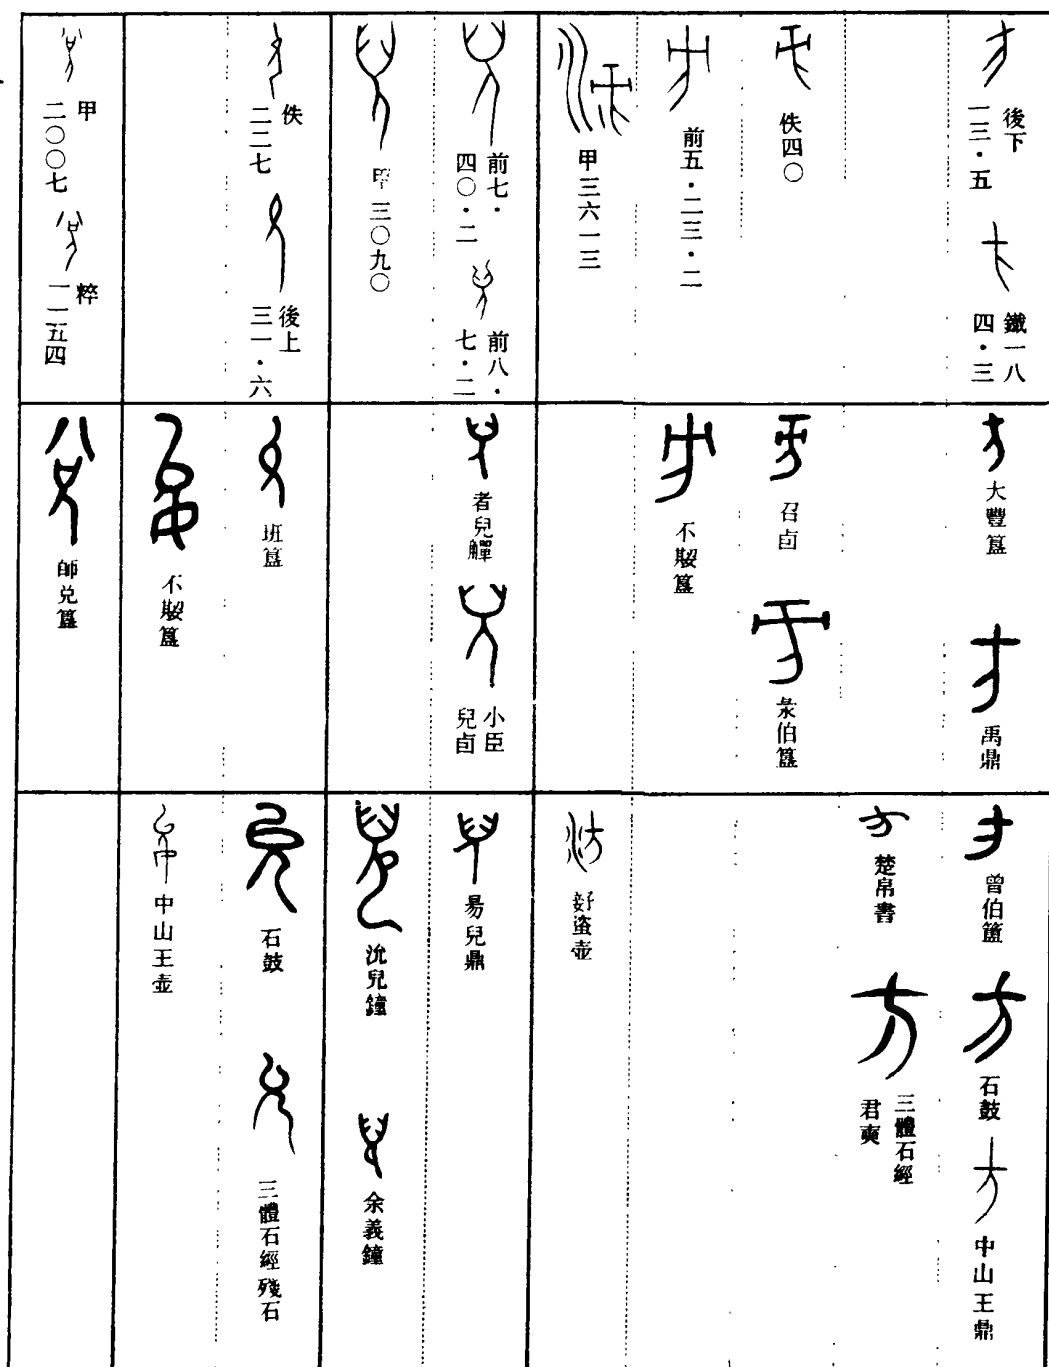 後下
一三·五
鐵一八
四·三
佚四〇
前五·二三·二
甲三六一三
前七·
四〇·二
前八·
七·二
甲三〇九〇
佚
二二七
後上
三一·六
甲
二〇〇七
粹
一一五四
大豐簋
禹鼎
召卣
彔伯簋
不𡢁簋
者兒觶
小臣
兒卣
班簋
不𡢁簋
師兌簋
曾伯簠
石鼓
中山王鼎
楚帛書
三體石經
君奭
𡚬盗壺
易兒鼎
沇兒鐘
余義鐘
石鼓
三體石經殘石
中山王壺